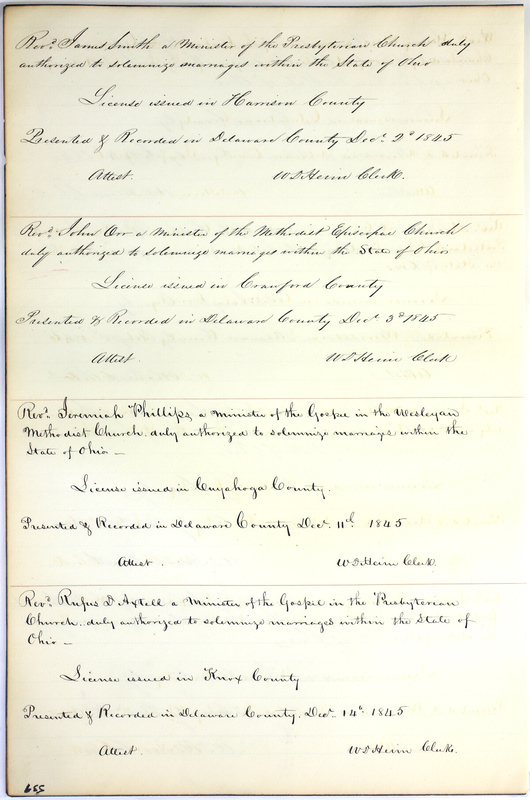 Rev.d James Smith a Minister of the Presbyterian Church duly
authorized to solemnize marriages within the State of Ohio
License issued in Harrison County
Presented & Recorded in Delaware County Dec.r 2d 1845
Attest. W D Heim Clerk.
Rev.d John Orr a Minister of the Methodist Episcopal Church
duly authorized to solemnize marriages within the State of Ohio
License issued in Crawford County
Presented & Recorded in Delaware County Dec.r 3d 1845
Attest. W D Heim Clerk
Rev.d Jeremiah Phillips, a Minister of the Gospel in the Wesleyan
Methodist Church duly authorized to solemnize marriages within the
State of Ohio —
License issued in Cuyahoga County.
Presented & Recorded in Delaware County Dec.r 11th 1845
Attest. W D Heim Clerk.
Rev.d Rufus D Axtell a Minister of the Gospel in the Presbyterian
Church.. duly authorized to solemnize marriages within the State of
Ohio —
License issued in Knox County
Presented & Recorded in Delaware County, Dec.r 14th 1845
Attest. W D Heim Clerk.